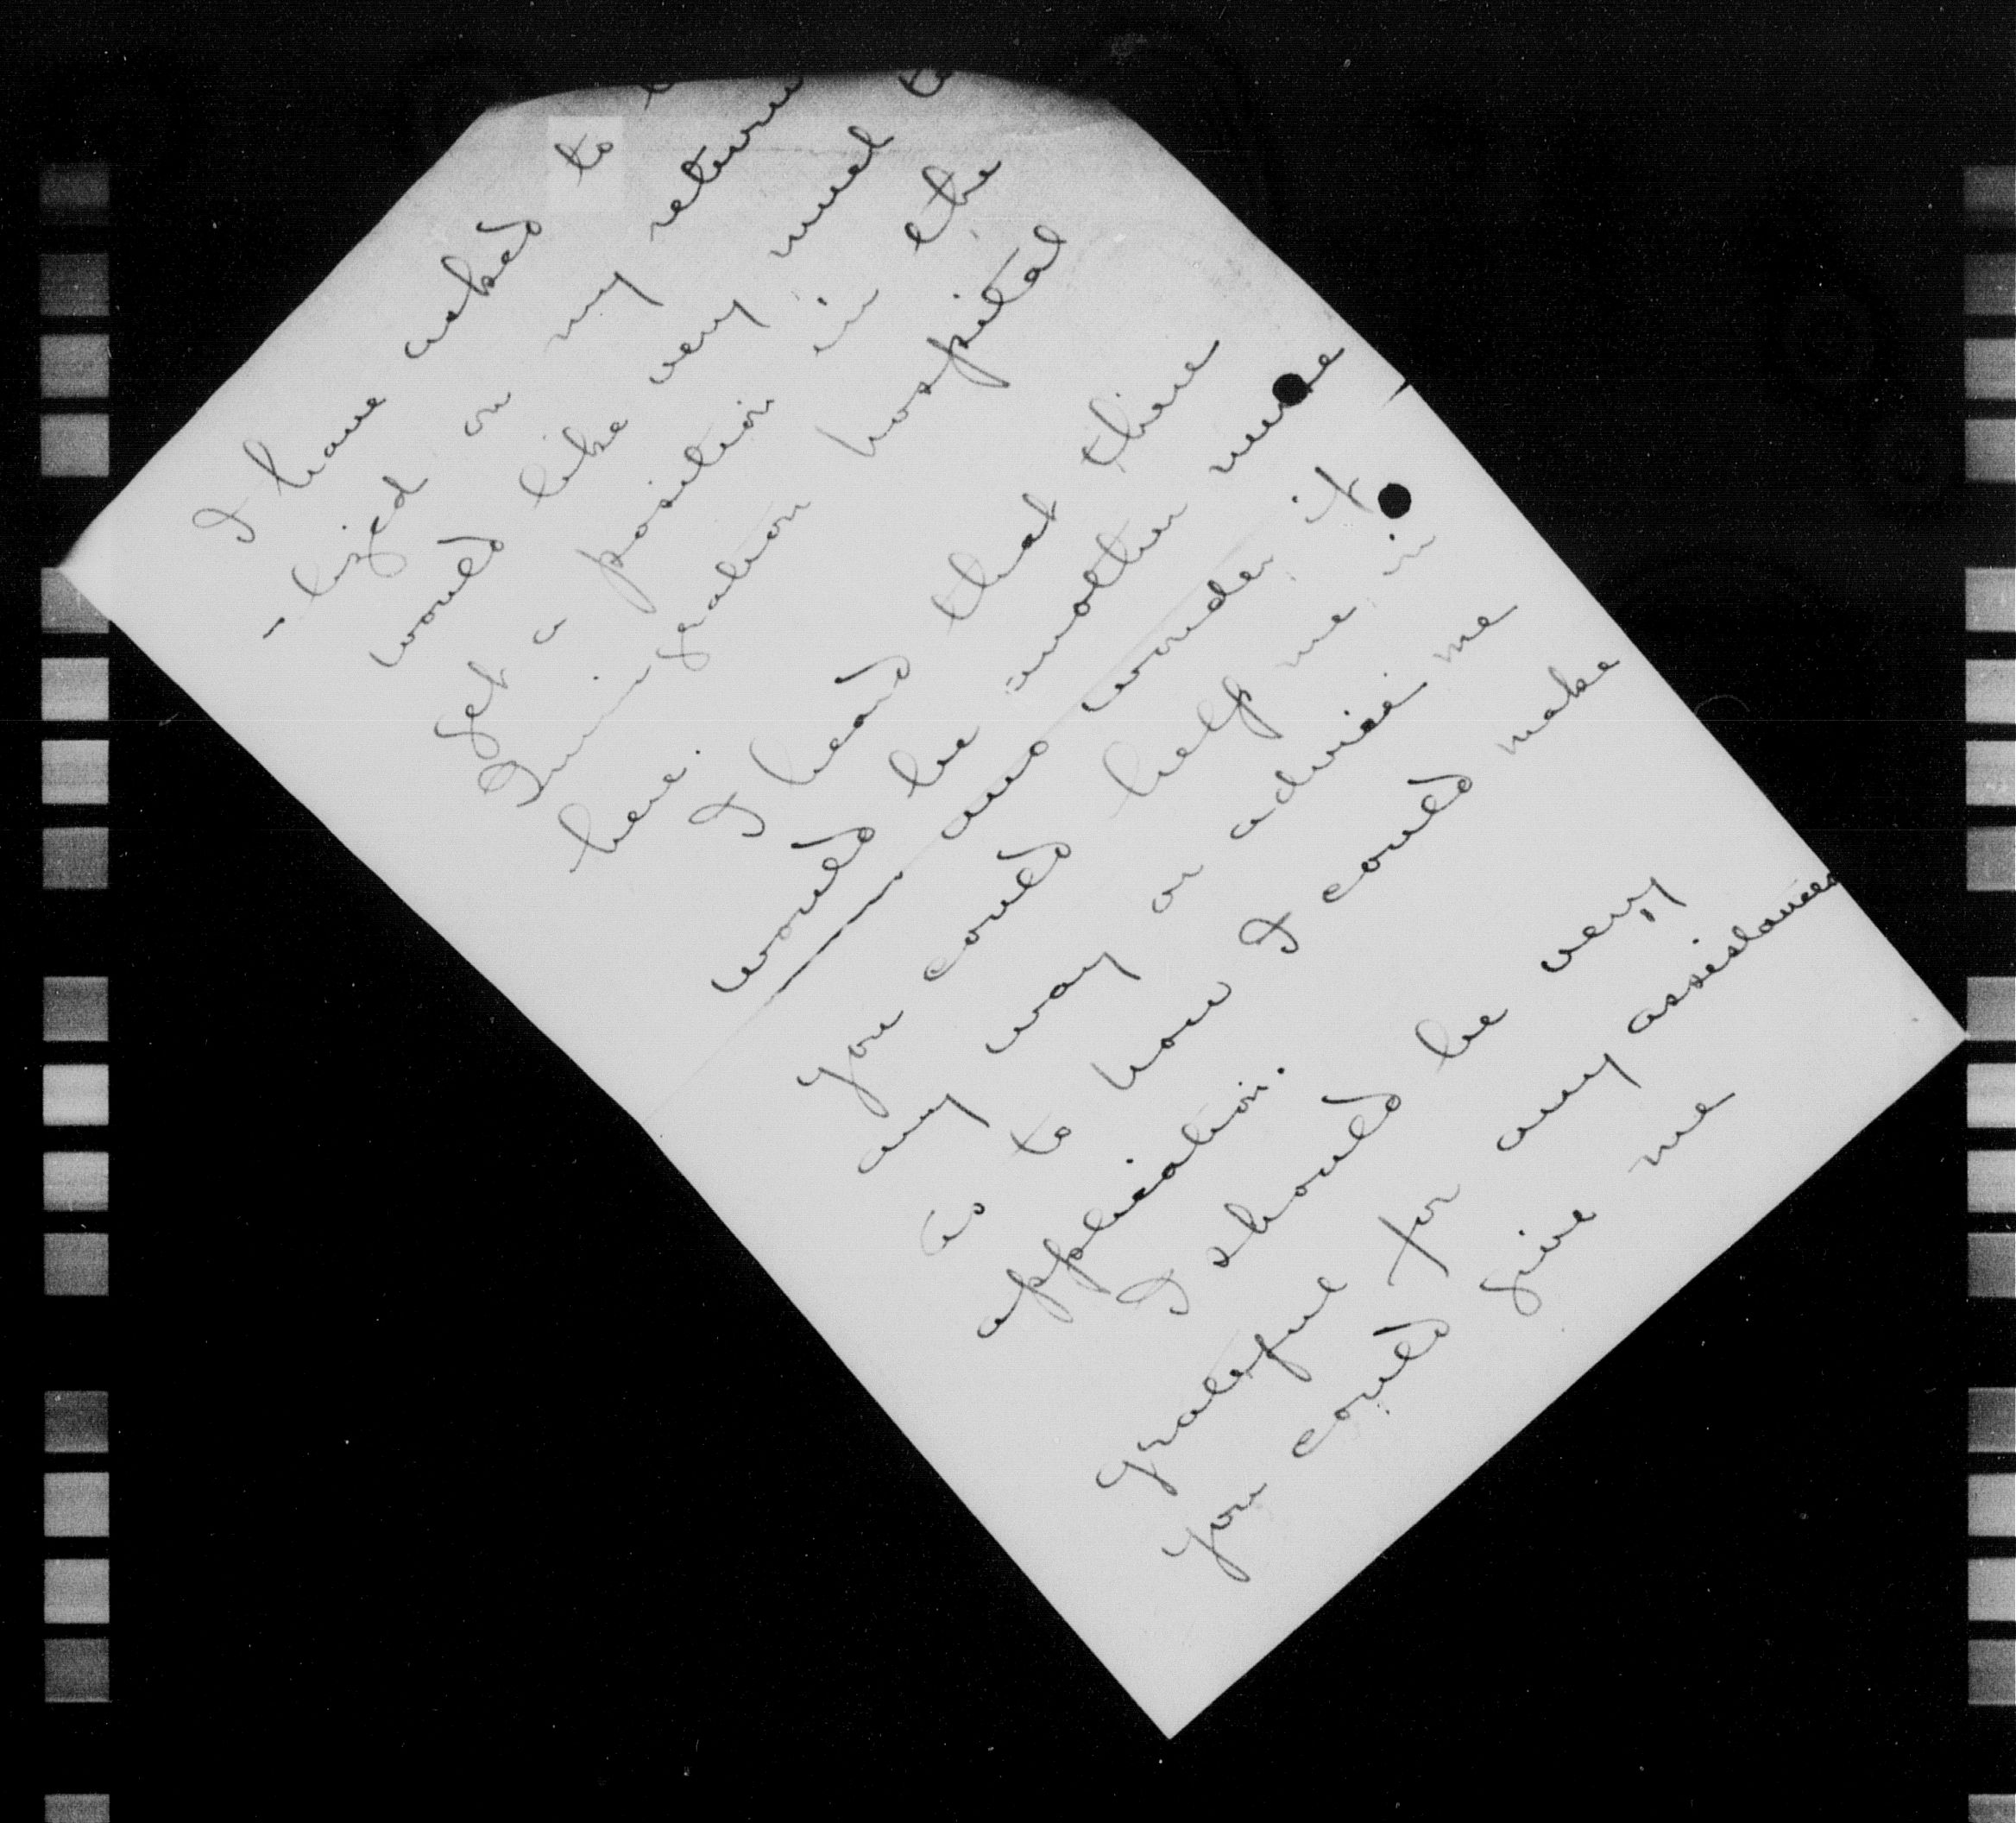 I have asked to
-lized on my return
would like very much to
get a position in the
Immigration hospital
here.
I heard that there
would be another nurse
and wonder if
you could help me in
any way or advise me
as to how I could make
application.
I should be very
grateful for any assistance
you could give me